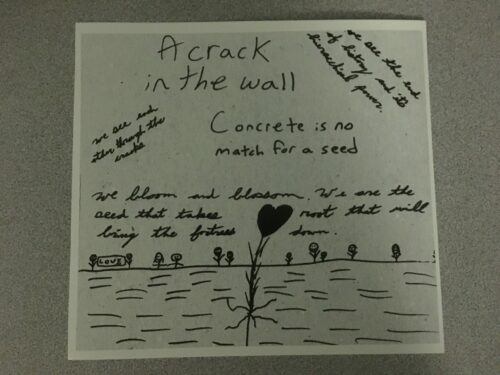 A crack
in the wall
we see the end
of history and its
hierarchical power.
we see each
other through the
cracks
Concrete is no
match for a seed
we bloom and blossom. We are the
seed that takes root that will
bring the fortress down.
LOVE